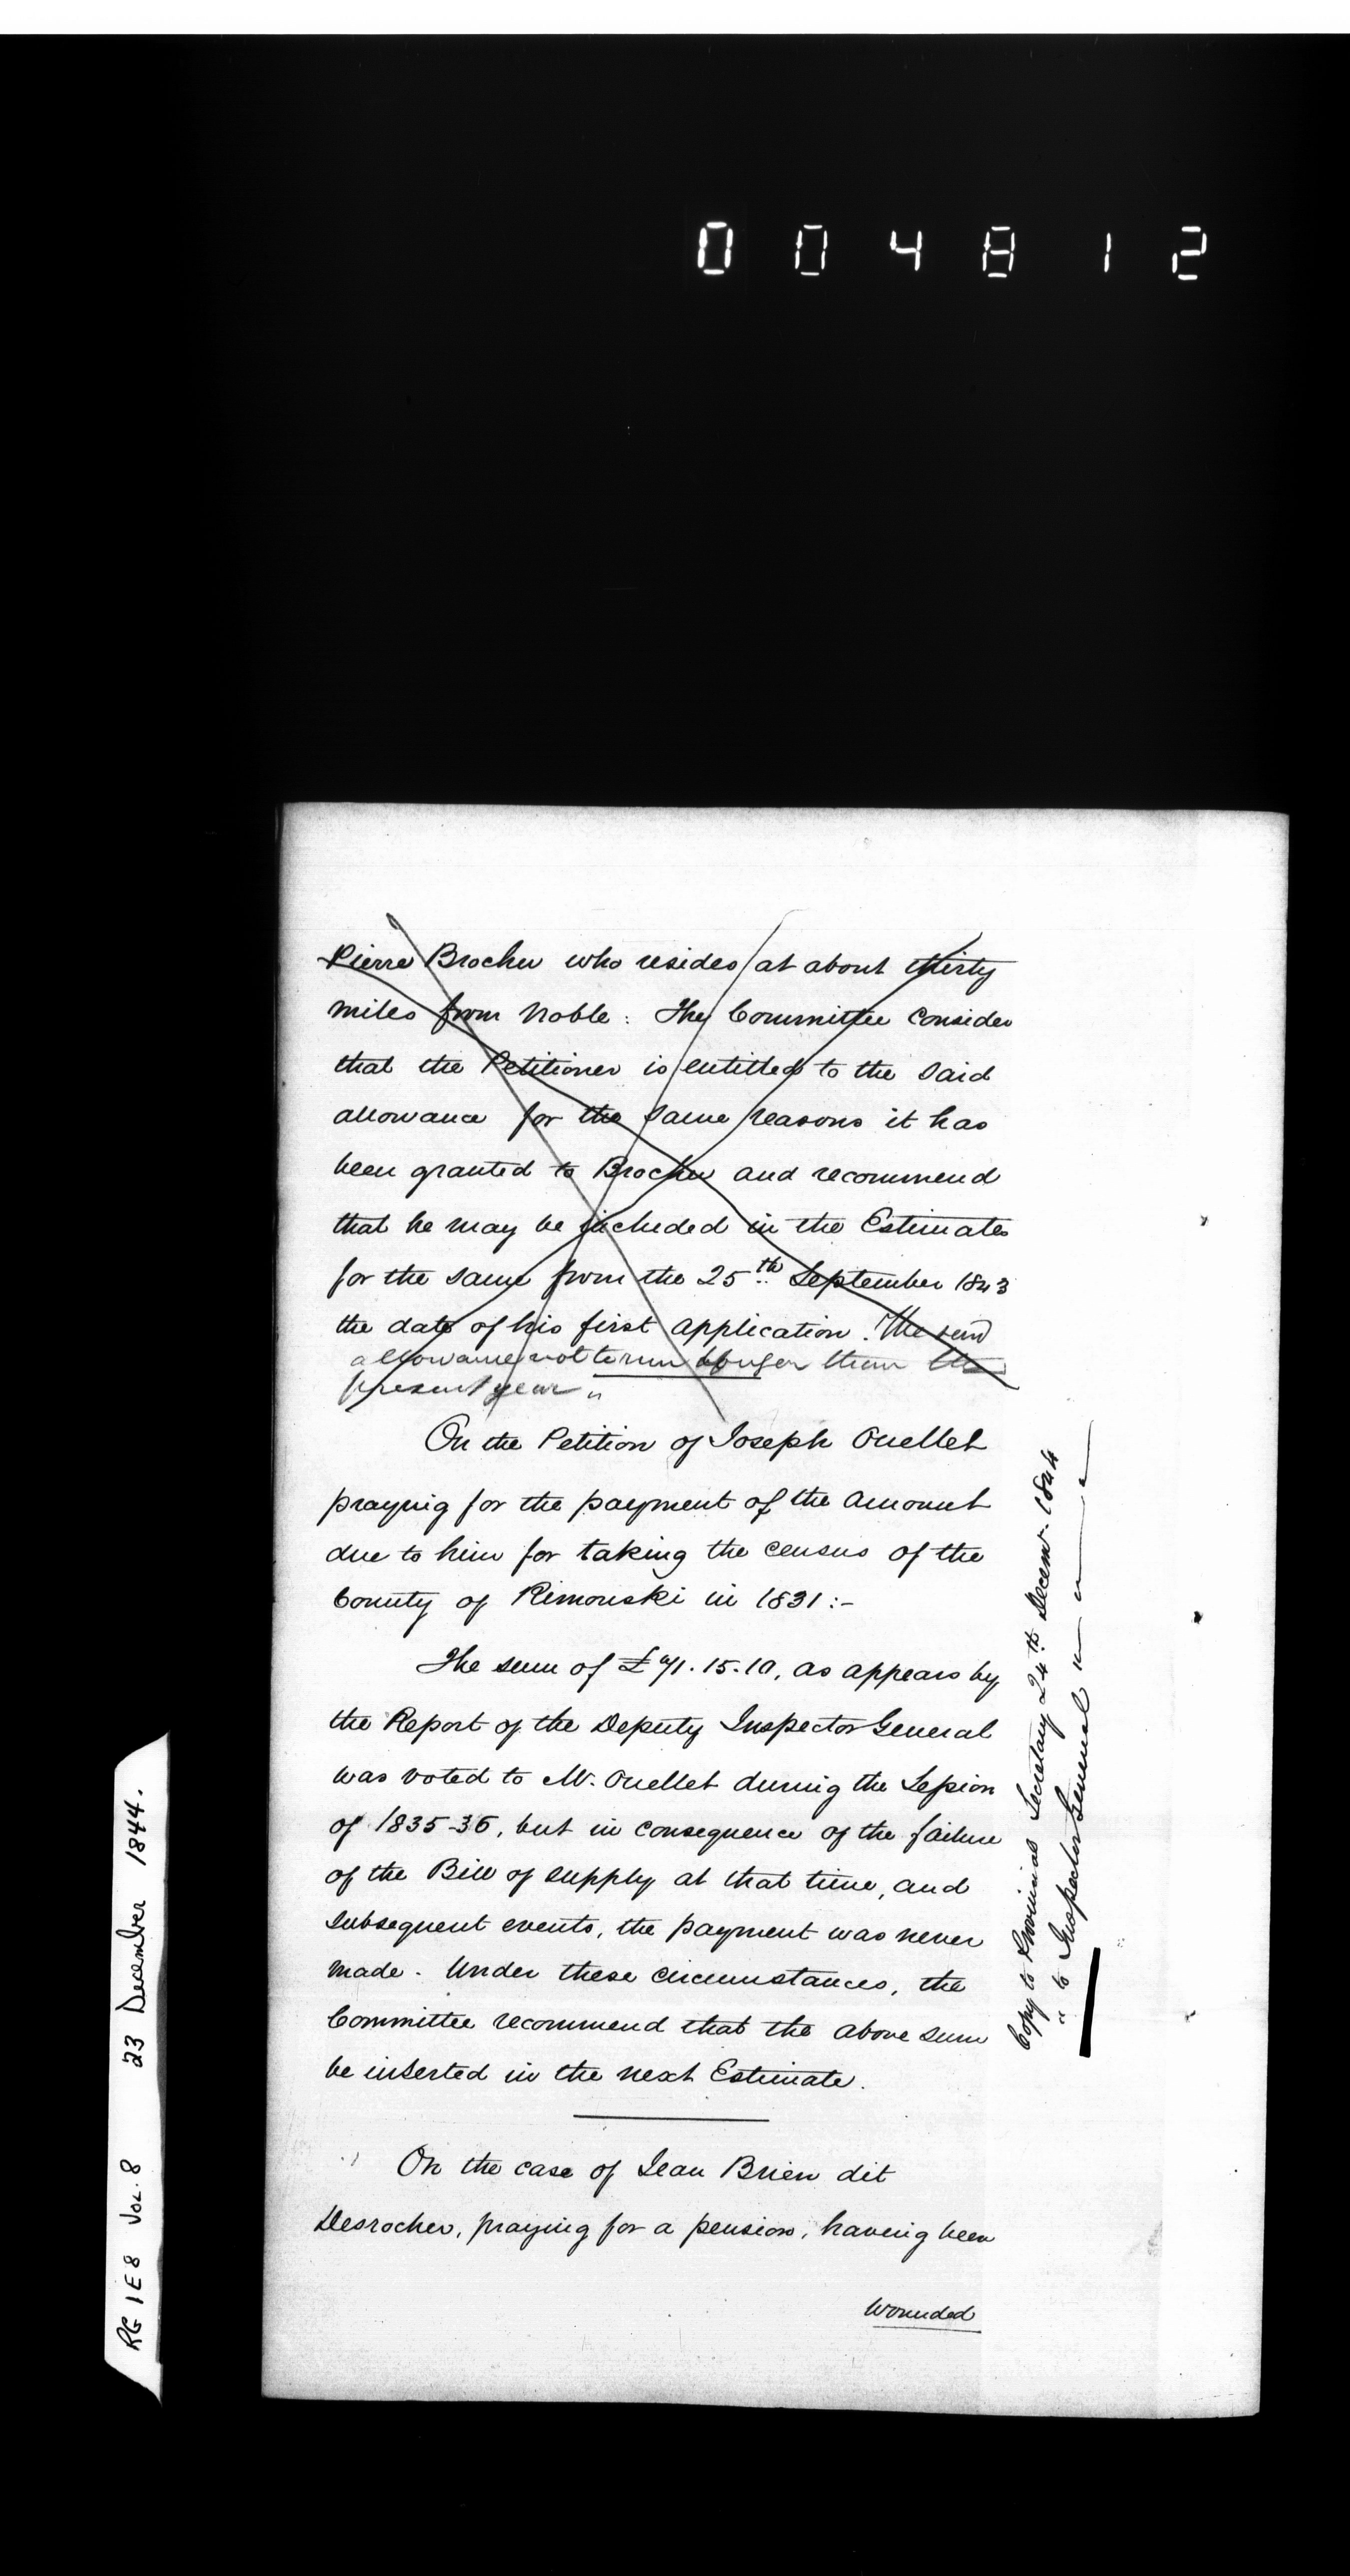 004812
Pierre Brochu who resides at about thirty
miles from Noble : The Committee consider
that the Petitioner is entitled to the said
allowance for the same reasons it has
been granted to Brochu and recommend
that he may be included in the Estimates
for the same from the 25th September 1843
the date of his first application. The said
allowance not to run longer than the
present year "
On the Petition of Joseph Ouellet
praying for the payment of the amount
due to him for taking the census of the
County of Rimouski in 1831 :-
The sum of £71.15.10, as appears by
the Report of the Deputy Inspector General
was voted to Mr. Ouellet during the Session
of 1835-36, but in consequence of the failure
of the Bill of supply at that time, and
subsequent events, the payment was never
made. Under these circumstances, the
Committee recommend that the above sum
be inserted in the next Estimate.
On the case of Jean Brien dit
Desrocher, praying for a pension, having been
Wounded
Copy to Provincial Secretary 24th Decemr. 1844
" to Inspector General " " "
RG 1 E 8 Vol. 8 23 December 1844.